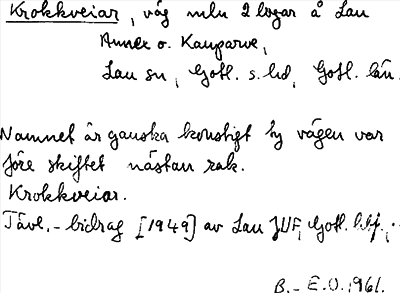 Krokkveiar, väg mln 2 logar å Lau
Annex o. Kauparve,
Lau sn, Gotl. s. hd, Gotl. län.
Namnet är ganska konstigt ty vägen var
före skiftet nästan rak.
Krokkveiar.
Tävl.-bidrag [1949] av Lau JUF, Gotl.
B.-E.O. 1961.